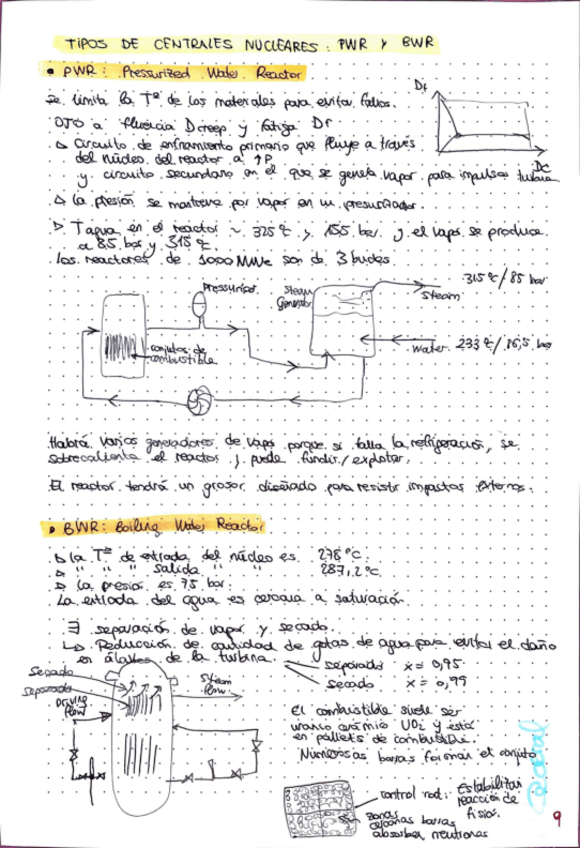 TIPOS DE CENTRALES NUCLEARES: PWR Y BWR
• PWR: Pressurized Water Reactor
Se limita la Tª de los materiales para evitar fallos.
OJO a fluencia Dcreep y fatiga Df
Df
Dc
▷ Circuito de enfriamiento primario que fluye a través
del núcleo del reactor a ↑P
y circuito secundario en el que se genera vapor para impulsar turbina
▷ La presión se mantiene por vapor en un presurizador.
▷ Tagua en el reactor ~ 325 ℃ y 155 bar y el vapor se produce
a 85 bar y 315 ℃.
Los reactores de 1000 MWe son de 3 bucles.
Pressurizer
Steam
Generator
315 ℃/85 bar
Steam
conjuntos de
combustible
Water 233 ℃/86,5 bar
Habrá varios generadores de vapor porque si falla la refrigeración, se
sobrecalienta el reactor y puede fundir/explotar.
El reactor tendrá un grosor diseñado para resistir impactos externos.
• BWR: Boiling Water Reactor
▷ La Tª de entrada del núcleo es 278 ℃.
▷ " " " salida " " 287,2 ℃
▷ La presión es 75 bar.
La entrada del agua es cercana a saturación
∃ separación de vapor y secado.
↳ Reducción de cantidad de gotas de agua para evitar el daño
en álabes de la turbina.
separador x = 0,95
secado x = 0,99
Secado
separador
Driving
flow
Steam
flow
El combustible suele ser
uranio cerámico UO2 y está
en pallets de combustible.
Numerosas barras forman el conjunto
control rod: Estabilizar
reacción de
fisión.
zonas
cercanas barras
absorben neutrones
9